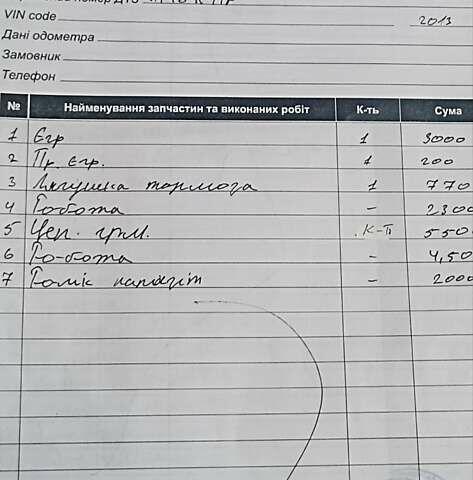 VIN code 2013
Дані одометра
Замовник
Телефон
№ Найменування запчастин та виконаних робіт К-ть Сума
1 Єгр 1 3000
2 Пр. єгр. 1 200
3 Лягушка тормоза 1 770
4 Робота – 2300
5 Цеп. грм. К-т 550
6 Ро-бота – 4,50
7 – 2000